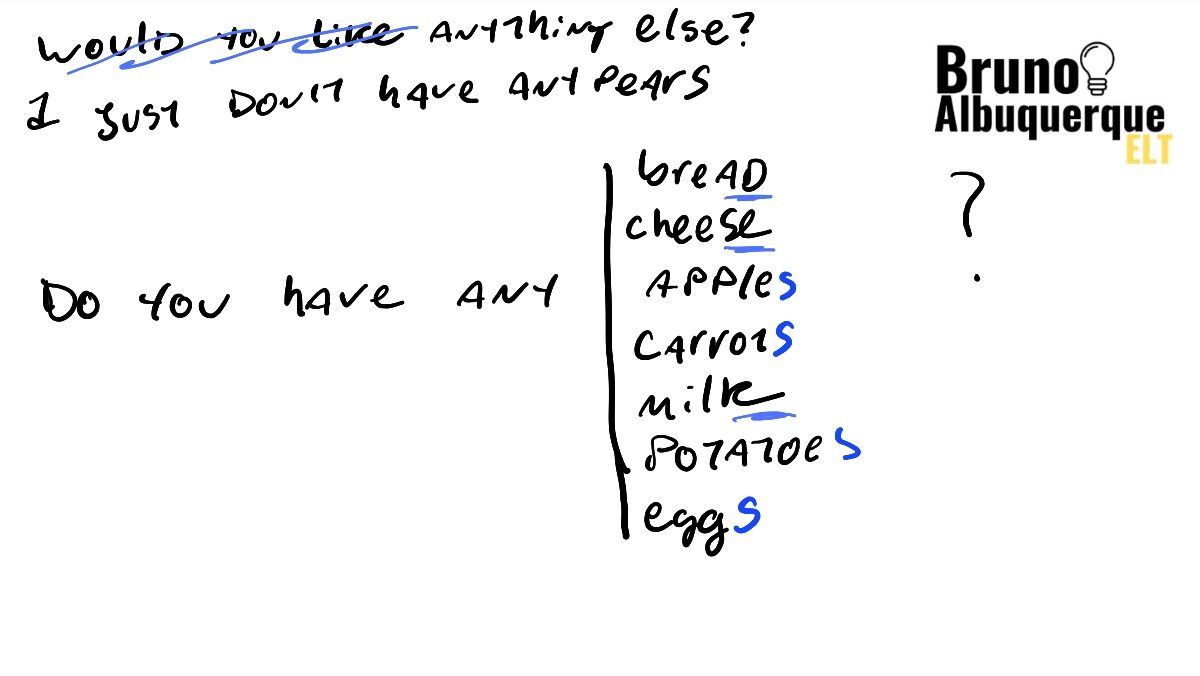 Would you like anything else?
I just don't have any pears
Bruno
Albuquerque
ELT
bread
cheese
Do you have any apples ?
carrots
milk
potatoes
eggs